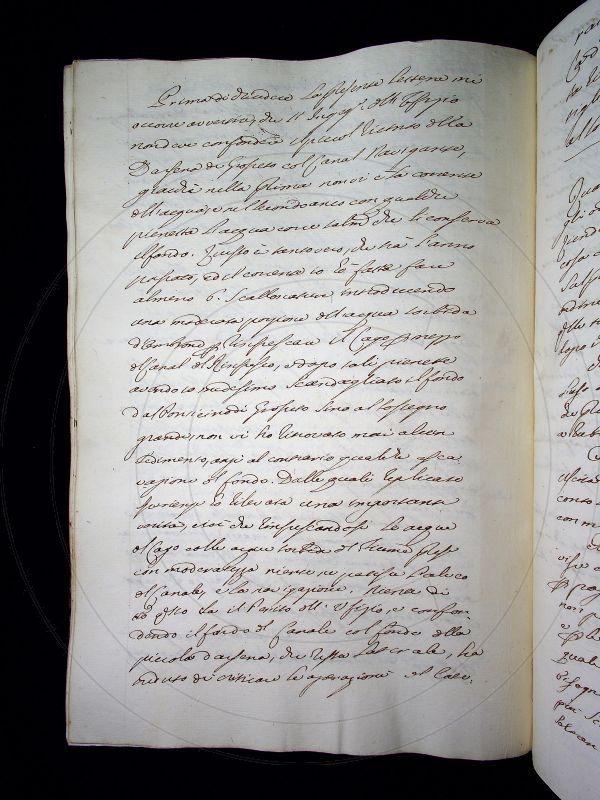 Prima di chiudere la presente Lettera mi
occorre avvertire, che il Ing.re dell'Ufizio
non deve confondere il piccol Recinto della
Darsena di Grosseto col Canal Navigante,
giacchè nella prima non vi è la corrente
dell'acqua, e nel secondo anco con qualche
pienetta l'acqua corre talmente che li conserva
il fondo. Questo è tanto vero, che trà l'anno
passato, ed il corrente io hò fatte fare
almeno 6. introducendo
una moderata porzione dell'acqua torbida
d'Ombrone p. rinfrescare il Lago p. mezzo
del Canal del Rinfresco, e dopo tali pienette
avendo io medesimo scandagliato il fondo
dal Ponticino di Grosseto sino al sostegno
grande, non vi ho trovato mai alcun
sedimento, anzi al contrario qualche esca-
vazione del fondo. Dalle quali replicate
sperienze io rilevata una importante
verità, cioè che rinfrescandosi le acque
del Lago colle acque torbide del Fiume stesso
con moderatezza niente ne patisce l'alveo
del Canale, e la navigazione. Niente di
tutto questo sa il Perito dell'Ufizio, e confon-
dendo il fondo del Canale col fondo della
piccola darsena, che resta laterale, ha
creduto di criticare le operazioni del Colo-